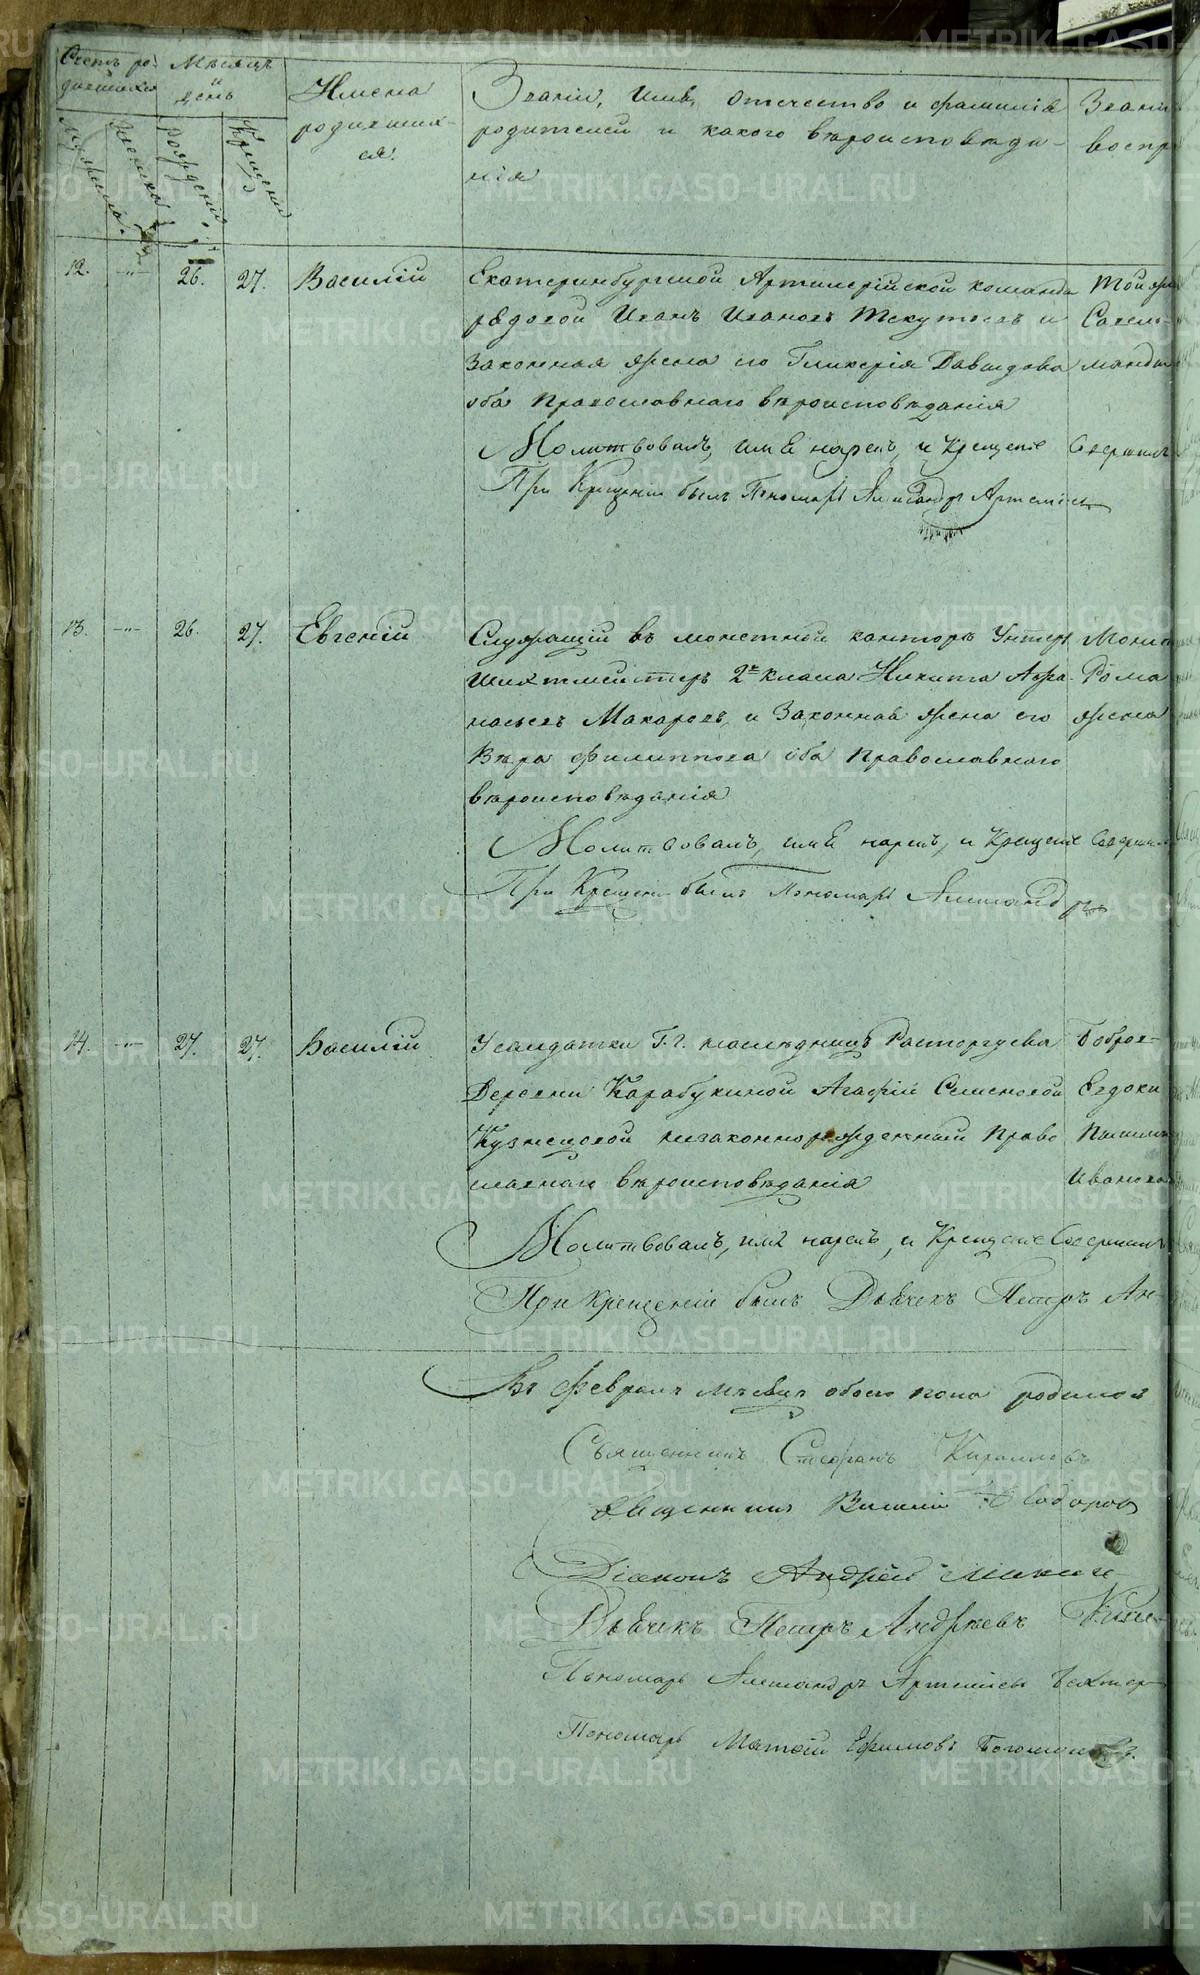 Счетъ ро-
дившихся
Мѣсяцъ
и
день
Имена
родивших-
ся.
Званіе, имя, отчество и фамилія
родителей и какого вѣроисповѣда-
нія
Звані
воспр
Мужска
Женска
Рожденія
Крещенія
12. —"— 26. 27. Василій
Екатеринбургской Артилерійской команды
рядовой Иванъ Ивановъ Текутьевъ и
Законная жена его Гликерія Давыдова
оба Православнаго вѣроисповѣданія
Той же
Савель
манды
Молитвовалъ, имя нарекъ, и Крещеніе Совершилъ
При Крещеніи былъ Пономарь Александръ Артемьевъ
13. —"— 26. 27. Евгеній
Служащій въ монетной канторѣ Унтеръ
Шихтмейстеръ 2го класа Никита Афа-
насьевъ Макаровъ, и Законная жена его
Вѣра Филиппова оба Православнаго
вѣроисповѣданія
Моне
Рома
жена
Молитвовалъ, имя нарекъ, и Крещеніе Соверши
При Крещеніи былъ Пономарь Александръ
14. —"— 27. 27. Василій
У солдатки Г.Г. наследницъ Расторгуева
Деревни Карабукиной Агафіи Семеновой
Кузнецовой незаконнорожденный Право
славнаго вѣроисповѣданія
Евдоки
Иванова
Молитвовалъ, имя нарекъ, и Крещеніе Совершилъ
При крещеніи былъ Дьячекъ Петръ Ан-
Въ февралѣ мѣсяцѣ обоего пола родилось
Священникъ Стефанъ Кирилловъ
Священникъ Василій Ѳеодоровъ
Діаконъ Андрей
Дьячекъ Петръ Андреевъ
Пономарь Александръ Артемьевъ
Пономарь Матѳей Ефимовъ
METRIKI.GASO-URAL.RU